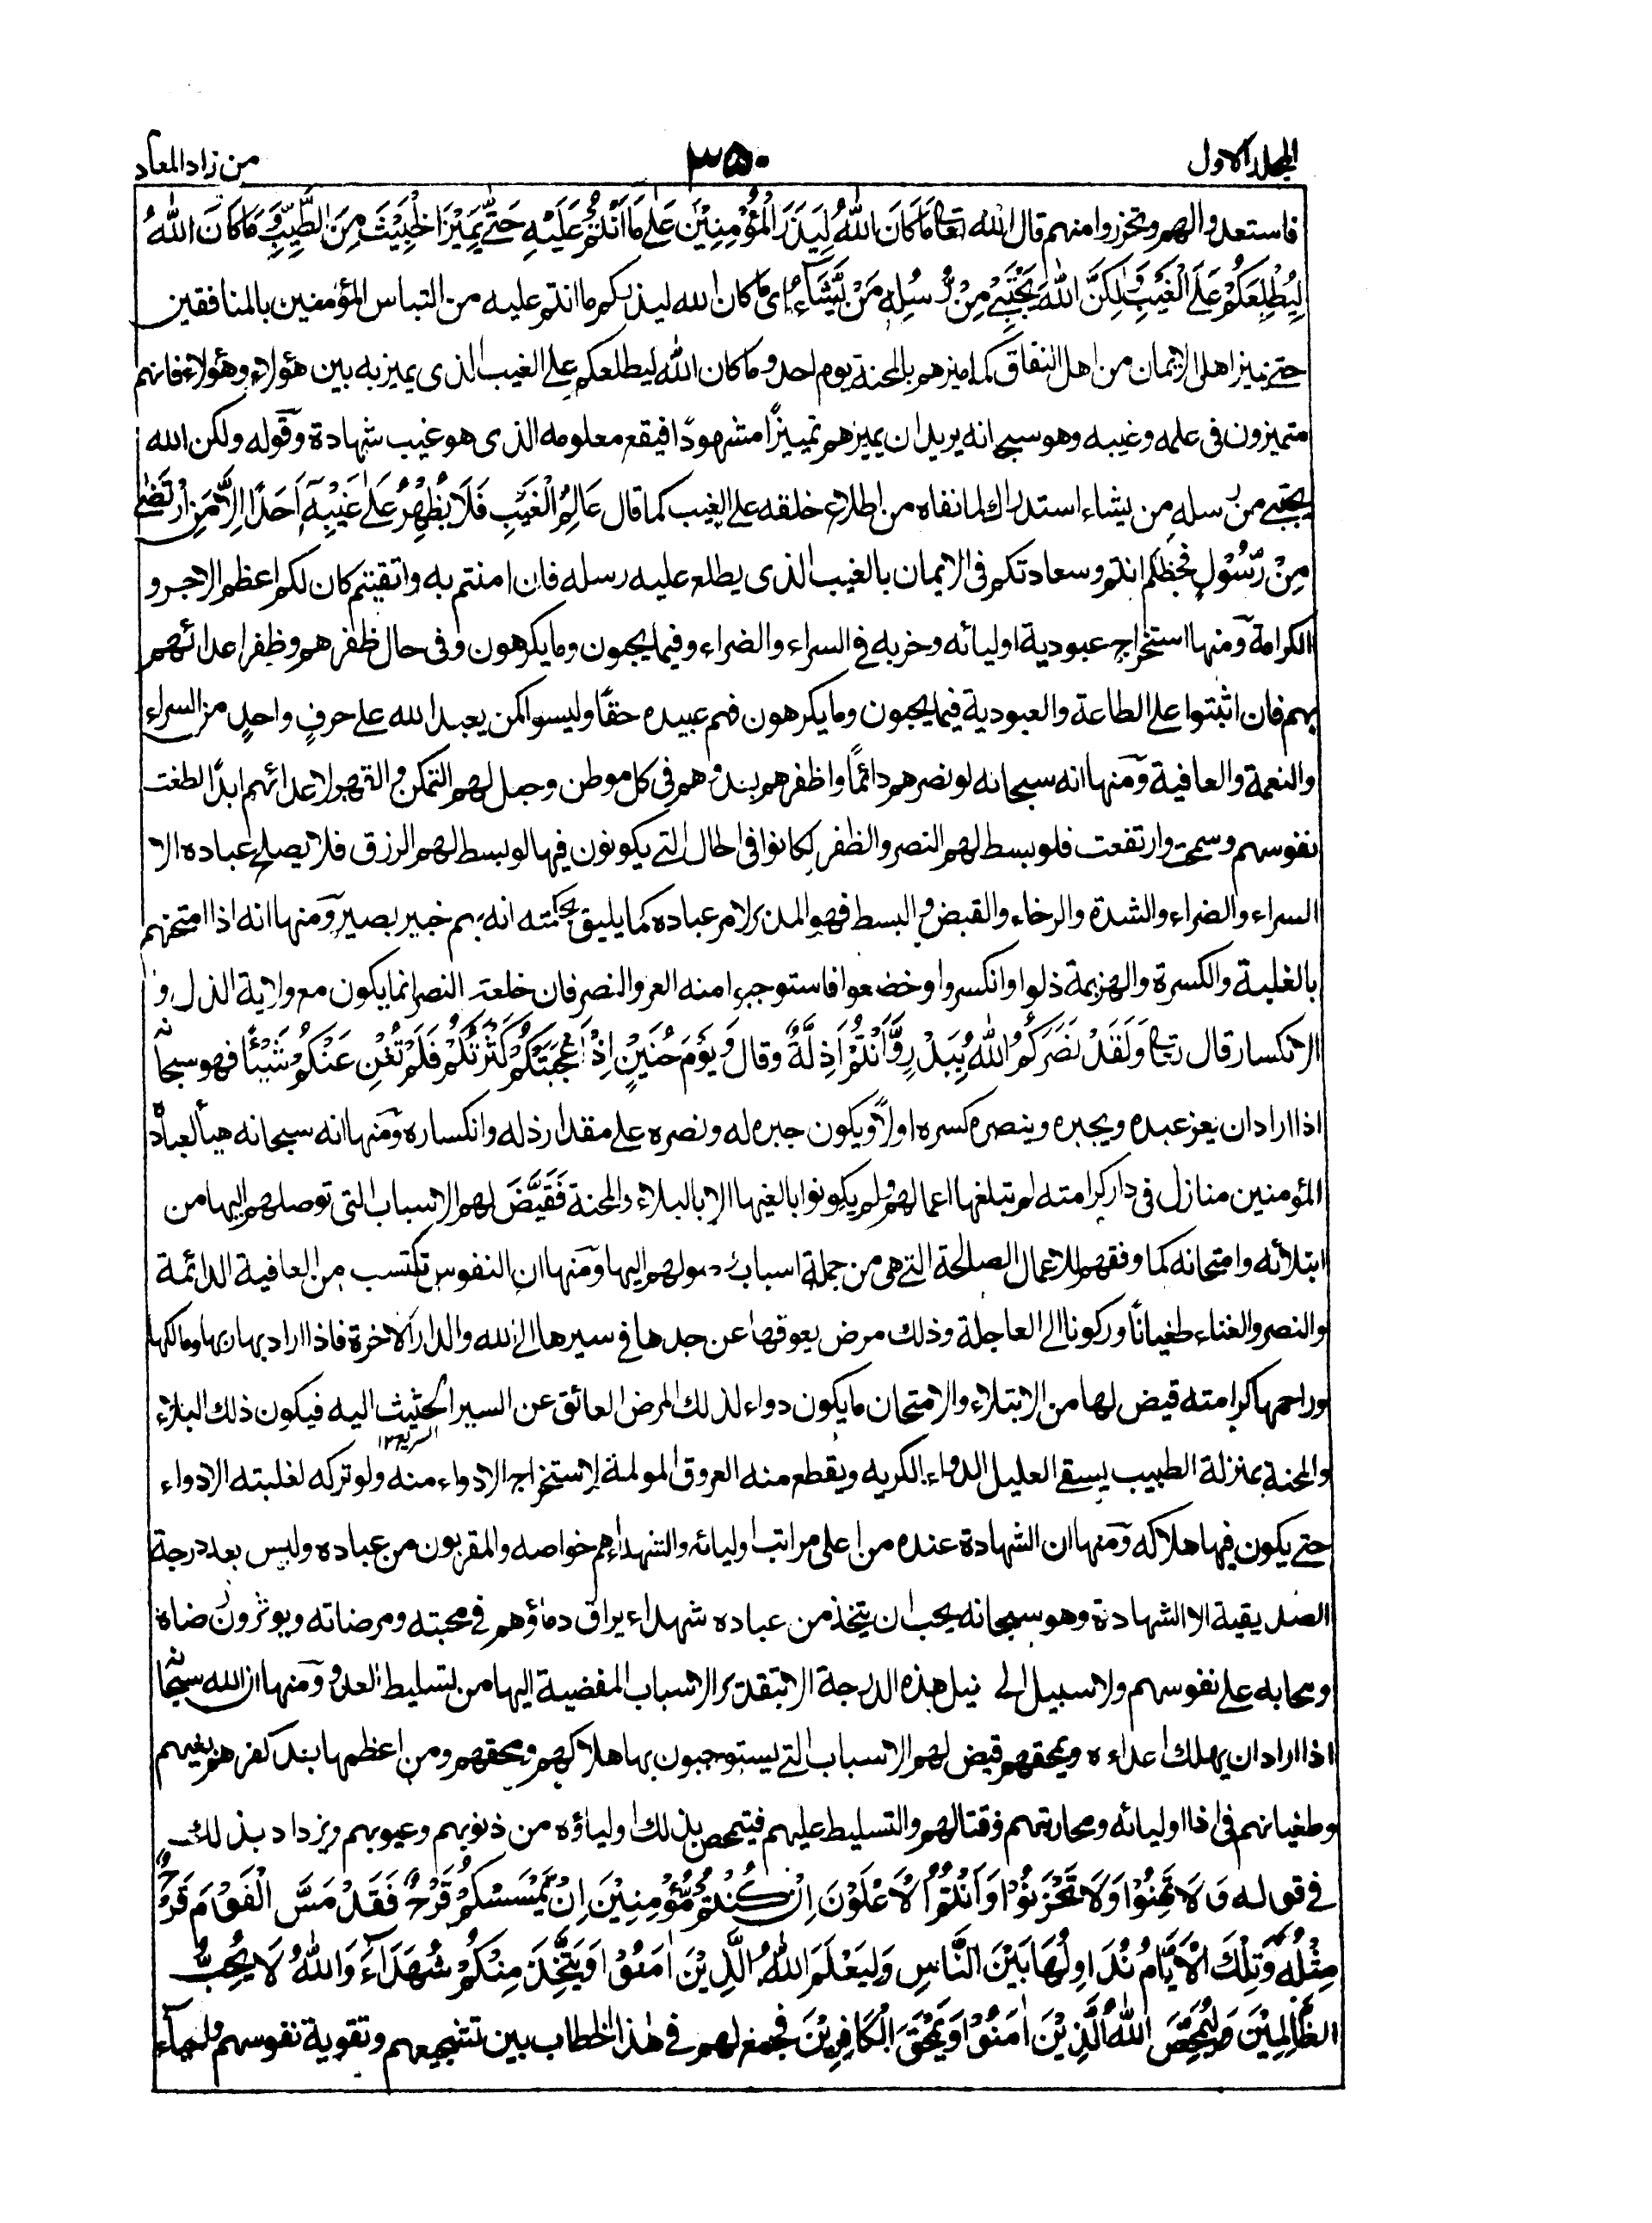 المجلد الاول
٣٥٠
من زاد المعاد
فاستعدوا لهم وتحزروا منهم قال الله تعا مَا كَانَ اللّٰهُ لِيَذَرَ الْمُؤْمِنِيْنَ عَلٰى مَا اَنْتُمْ عَلَيْهِ حَتّٰى يَمِيْزَ الْخَبِيْثَ مِنَ الطَّيِّبِ وَمَا كَانَ اللّٰهُ
لِيُطْلِعَكُمْ عَلَى الْغَيْبِ وَلٰكِنَّ اللّٰهَ يَجْتَبِىْ مِنْ رُّسُلِهٖ مَنْ يَّشَآءُ اى ما كان الله ليذركم ما انتم عليه من التباس المؤمنين بالمنافقين
حتى يميز اهل الايمان من اهل النفاق كما ميزهم بالمحنة يوم احد وما كان الله ليطلعكم على الغيب الذى يميز به بين هؤلاء وهؤلاء فانهم
متميزون فى علمه وغيبه وهو سبحانه يريد ان يميزهم تمييزًا مشهودًا فيقع معلومه الذى هو غيب شهادة وقوله ولكن الله
يجتبى من رسله من يشاء استدراك لما نفاه من اطلاع خلقه على الغيب كما قال عَالِمُ الْغَيْبِ فَلَا يُظْهِرُ عَلٰى غَيْبِهٖٓ اَحَدًا اِلَّا مَنِ ارْتَضٰى
مِنْ رَّسُوْلٍ فحظكم انتم وسعادتكم فى الايمان بالغيب الذى يطلع عليه رسله فان امنتم به واتقيتم كان لكم اعظم الاجر و
الكرامة ومنها استخراج عبودية اوليائه وحزبه فى السراء والضراء وفيما يحبون وما يكرهون وفى حال ظفرهم وظفر اعدائهم
بهم فان اثبتوا على الطاعة والعبودية فيما يحبون وما يكرهون فهم عبيده حقًا وليسوا كمن يعبد الله على حرفٍ واحدٍ من السراء
والنعمة والعافية ومنها انه سبحانه لو نصرهم دائمًا واظفرهم بعدوهم فى كل موطن وجعل لهم التمكن والقهر لاعدائهم ابدًا لطغت
نفوسهم وشمخت وارتفعت فلو بسط لهم النصر والظفر لكانوا فى الحال التى يكونون فيها لو بسط لهم الرزق فلا يصلح عباده الا
السراء والضراء والشدة والرخاء والقبض والبسط فهو المدبر لامر عباده كما يليق بحكمته انه بهم خبير بصير ومنها انه اذا امتحنهم
بالغلبة والكسرة والهزيمة ذلوا وانكسروا وخضعوا فاستوجبوا منه العز والنصر فان خلعة النصر انما يكون مع ولاية الذل و
الانكسار قال تعا وَلَقَدْ نَصَرَكُمُ اللّٰهُ بِبَدْرٍ وَّاَنْتُمْ اَذِلَّةٌ وقال وَيَوْمَ حُنَيْنٍ اِذْ اَعْجَبَتْكُمْ كَثْرَتُكُمْ فَلَمْ تُغْنِ عَنْكُمْ شَيْئًا فهو سبحانه
اذا اراد ان يعز عبده ويجبره وينصره كسره اولًا ويكون جبره له ونصره على مقدار ذله وانكساره ومنها انه سبحانه هيأ لعباده
المؤمنين منازل فى دار كرامته لم تبلغها اعمالهم ولم يكونوا بالغيها الا بالبلاء والمحنة فَقَيَّضَ لهم الاسباب التى توصلهم اليها من
ابتلائه وامتحانه كما وفقهم للاعمال الصالحة التى هى من جملة اسباب وصولهم اليها ومنها ان النفوس تكتسب من العافية الدائمة
والنصر والغناء طغيانًا وركونا الى العاجلة وذلك مرض يعوقها عن جدها فى سيرها الى الله والدار الاخرة فاذا اراد بها ربها ومالكها
وراحمها كرامته قيض لها من الابتلاء والامتحان ما يكون دواء لذلك المرض العائق عن السير الحثيث اليه فيكون ذلك البلاء
السريع ١٢
والمحنة بمنزلة الطبيب يسقى العليل الدواء الكريه ويقطع منه العروق المولمة لاستخراج الادواء منه ولو تركه لغلبته الادواء
حتى يكون فيها هلاكه ومنها ان الشهادة عنده من اعلى مراتب اوليائه والشهداء هم خواصه والمقربون من عباده وليس بعد درجة
الصديقية الا الشهادة وهو سبحانه يحب ان يتخذ من عباده شهداء يراق دماؤهم فى محبته ومرضاته ويوثرون رضاه
ومحابه على نفوسهم ولا سبيل الى نيل هذه الدرجة الا بتقدير الاسباب المفضية اليها من تسليط العدو ومنها ان الله سبحانه
اذا اراد ان يهلك اعداءه ويمحقهم قيض لهم الاسباب التى يستوجبون بها هلاكهم ومحقهم ومن اعظمها بعد كفرهم بغيهم
وطغيانهم فى اذا اوليائه ومحاربتهم وقتالهم والتسليط عليهم فيتمحص بذلك اولياؤه من ذنوبهم وعيوبهم ويزداد بذلك
فى قوله وَلَا تَهِنُوْا وَلَا تَحْزَنُوْا وَاَنْتُمُ الْاَعْلَوْنَ اِنْ كُنْتُمْ مُّؤْمِنِيْنَ اِنْ يَّمْسَسْكُمْ قَرْحٌ فَقَدْ مَسَّ الْقَوْمَ قَرْحٌ
مِّثْلُهٗ وَتِلْكَ الْاَيَّامُ نُدَاوِلُهَا بَيْنَ النَّاسِ وَلِيَعْلَمَ اللّٰهُ الَّذِيْنَ اٰمَنُوْا وَيَتَّخِذَ مِنْكُمْ شُهَدَآءَ وَاللّٰهُ لَا يُحِبُّ
الظَّالِمِيْنَ وَلِيُمَحِّصَ اللّٰهُ الَّذِيْنَ اٰمَنُوْا وَيَمْحَقَ الْكَافِرِيْنَ فجمع لهم فى هذا الخطاب بين تشجيعهم وتقوية نفوسهم واحياء